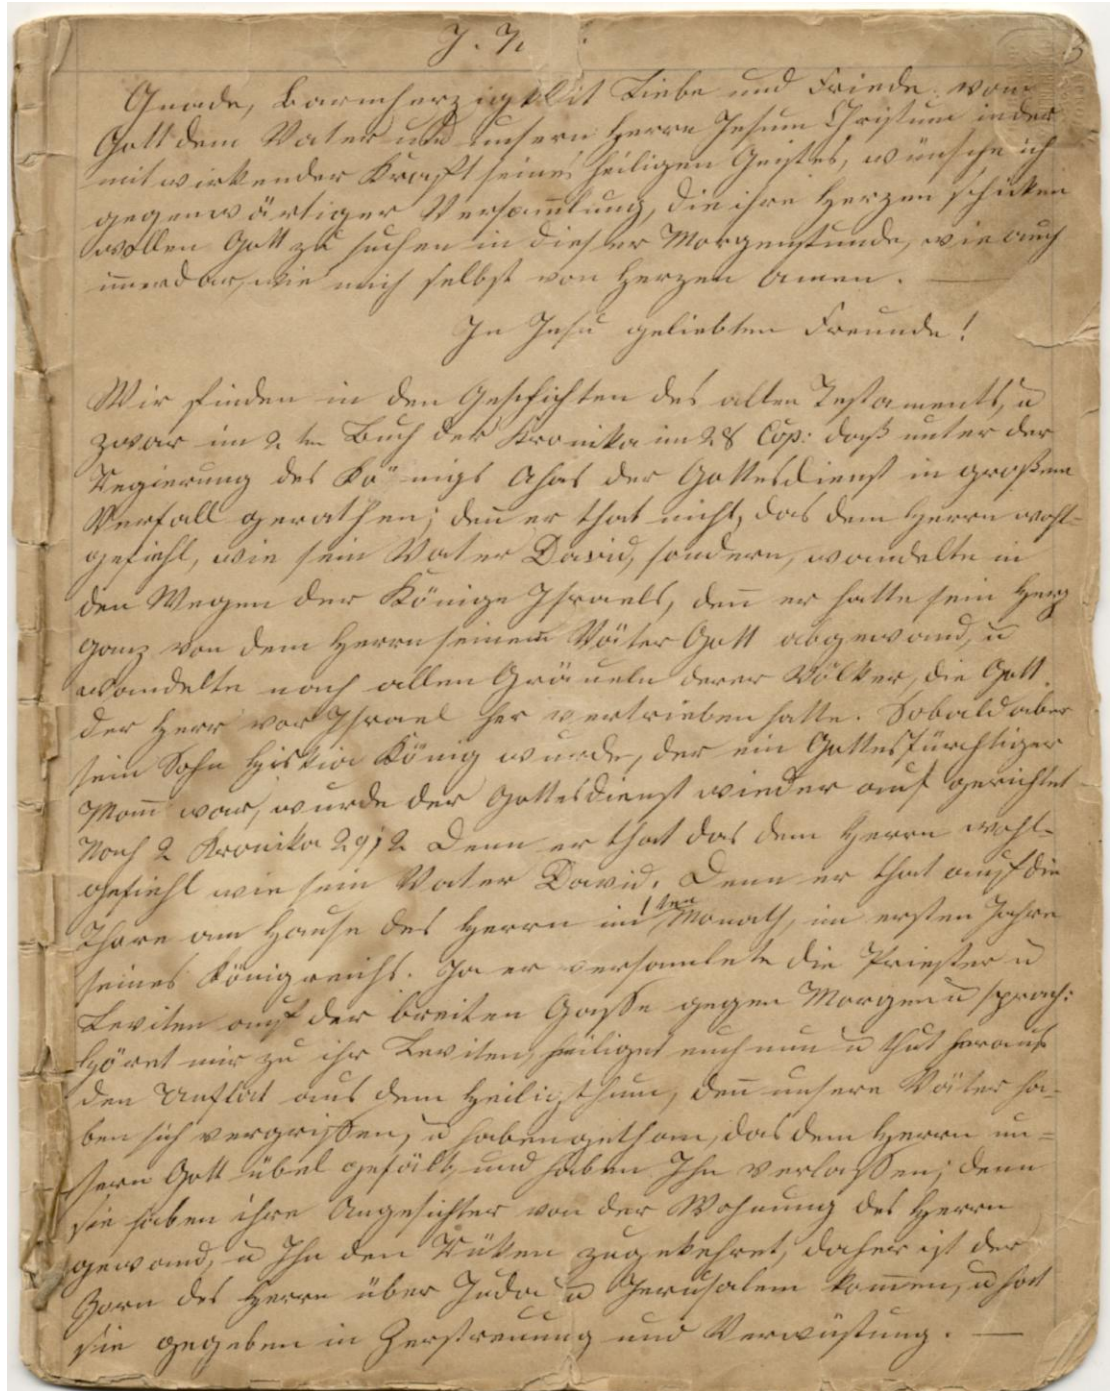 J. N.
3
Gnade, Barmherzigkeit Liebe und Friede von
Gott dem Vater und unsern Herrn Jesum Christum in der
mitwirkender Krafft seines heiligen Geistes, wünsche ich
gegenwärtiger Versam̄lung, die ihre Herzen schicken
wollen Gott zu suchen in dieser Morgenstunde, wie auch
im̄erdar, wie mich selbst von Herzen Amen. —
In Jesu geliebten Freunde!
Wir finden in den Geschichten des alten Testaments, u
zwar im 2ten Buch der Kronika im 28 Cap: daß unter der
Regierung des Königs Ahas der Gottesdienst in großem
Verfall gerathen; den̄ er that nicht, das dem Herrn wohl=
gefiehl, wie sein Vater David, sondern, wandelte in
den Wegen der Könige Israels, den̄ er hatte sein Herz
ganz von dem Herrn seinem Väter Gott abgewand, u
wandelte nach allen Gräueln derer Völker, die Gott
der Herr vor Israel her vertrieben hatte. Sobald aber
sein Sohn Hiskia König wurde, der ein Gottesfürchtiger
Man̄ war, wurde der Gottesdienst wieder auf gerichtet
Nach 2 Kronika 29; 2 Denn er that das dem Herrn wohl-
gefiehl wie sein Vater David. Denn er that auf die
Thore am Hause des Herrn im 1ten Monath, im ersten Jahre
seines Königreichs. Ja er versamlete die Priester u
Leviten auf der breiten Gasse gegen Morgen u sprach:
Höret mir zu ihr Leviten, heiliget euch nun u thut heraus
den Unflat aus dem Heiligthum, den̄ unsere Väter ha-
ben sich vergriffen, u haben gethan, das dem Herrn un=
sern Gott übel gefält, und haben Ihn verlassen; denn
sie haben ihre Angesichter von der Wohnung des Herrn
gewand, u Ihn den Rüken zugekehret, daher ist der
Zorn des Herrn über Juda u Jerusalem kom̄en, u hat
sie gegeben in Zerstreuung und Verwüstung. —